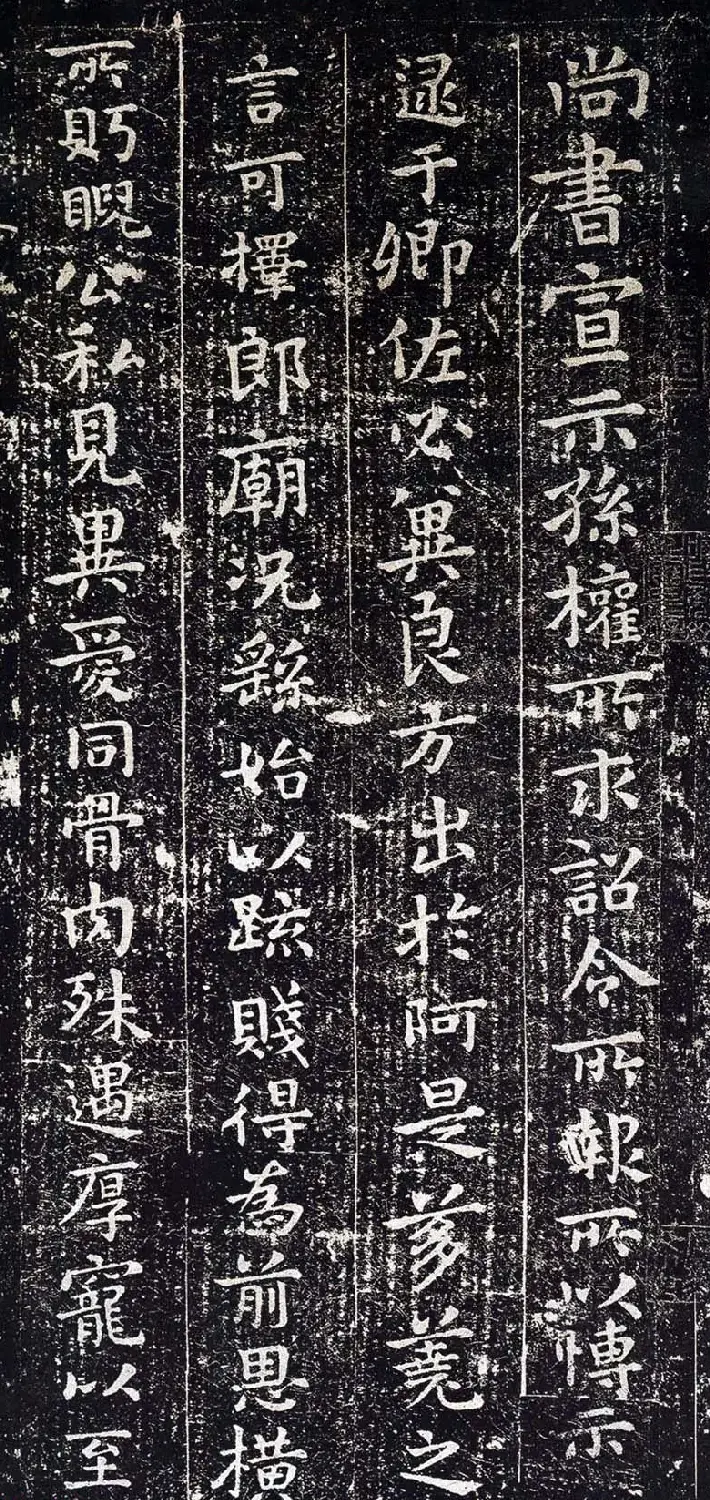 尚書宣示孫權所求詔令所報所以博示
逮于卿佐必兾良方出於阿是芻蕘之
言可擇郎廟況繇始以踈賤得為前恩橫
所眄睨公私見異愛同骨肉殊遇厚寵以至